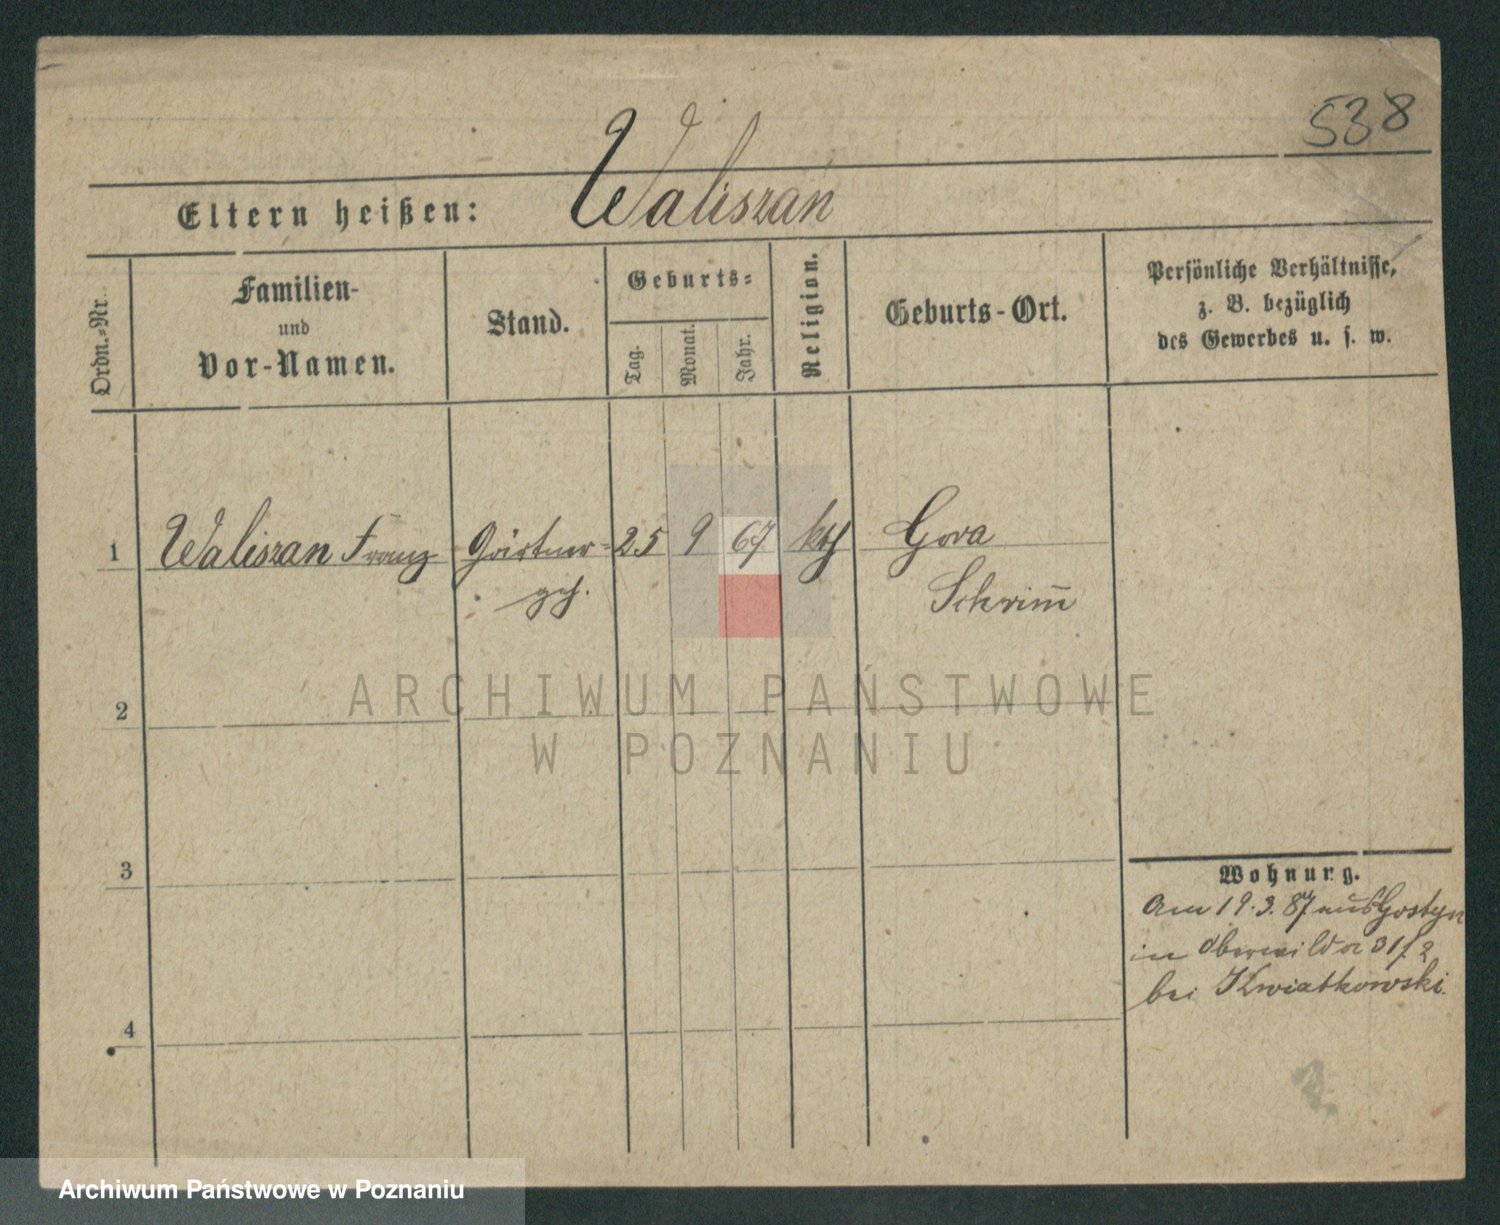 538
Eltern heißen: Waliszan
Ordn.-Nr.
Familien-
und
Vor-Namen.
Stand.
Geburts-
Tag.
Monat.
Jahr.
Religion.
Geburts-Ort.
Persönliche Verhältnisse,
z. B. bezüglich
des Gewerbes u. s. w.
1 Waliszan Franz Gärtner- 25 9 67 kth Gora
geh. Schrim̄
2
3
4
Wohnung.
Am 19.3.87 aus Gostyn
in Oberwilda 31/2
bei Kwiatkowski.
ARCHIWUM PAŃSTWOWE
W POZNANIU
Archiwum Państwowe w Poznaniu